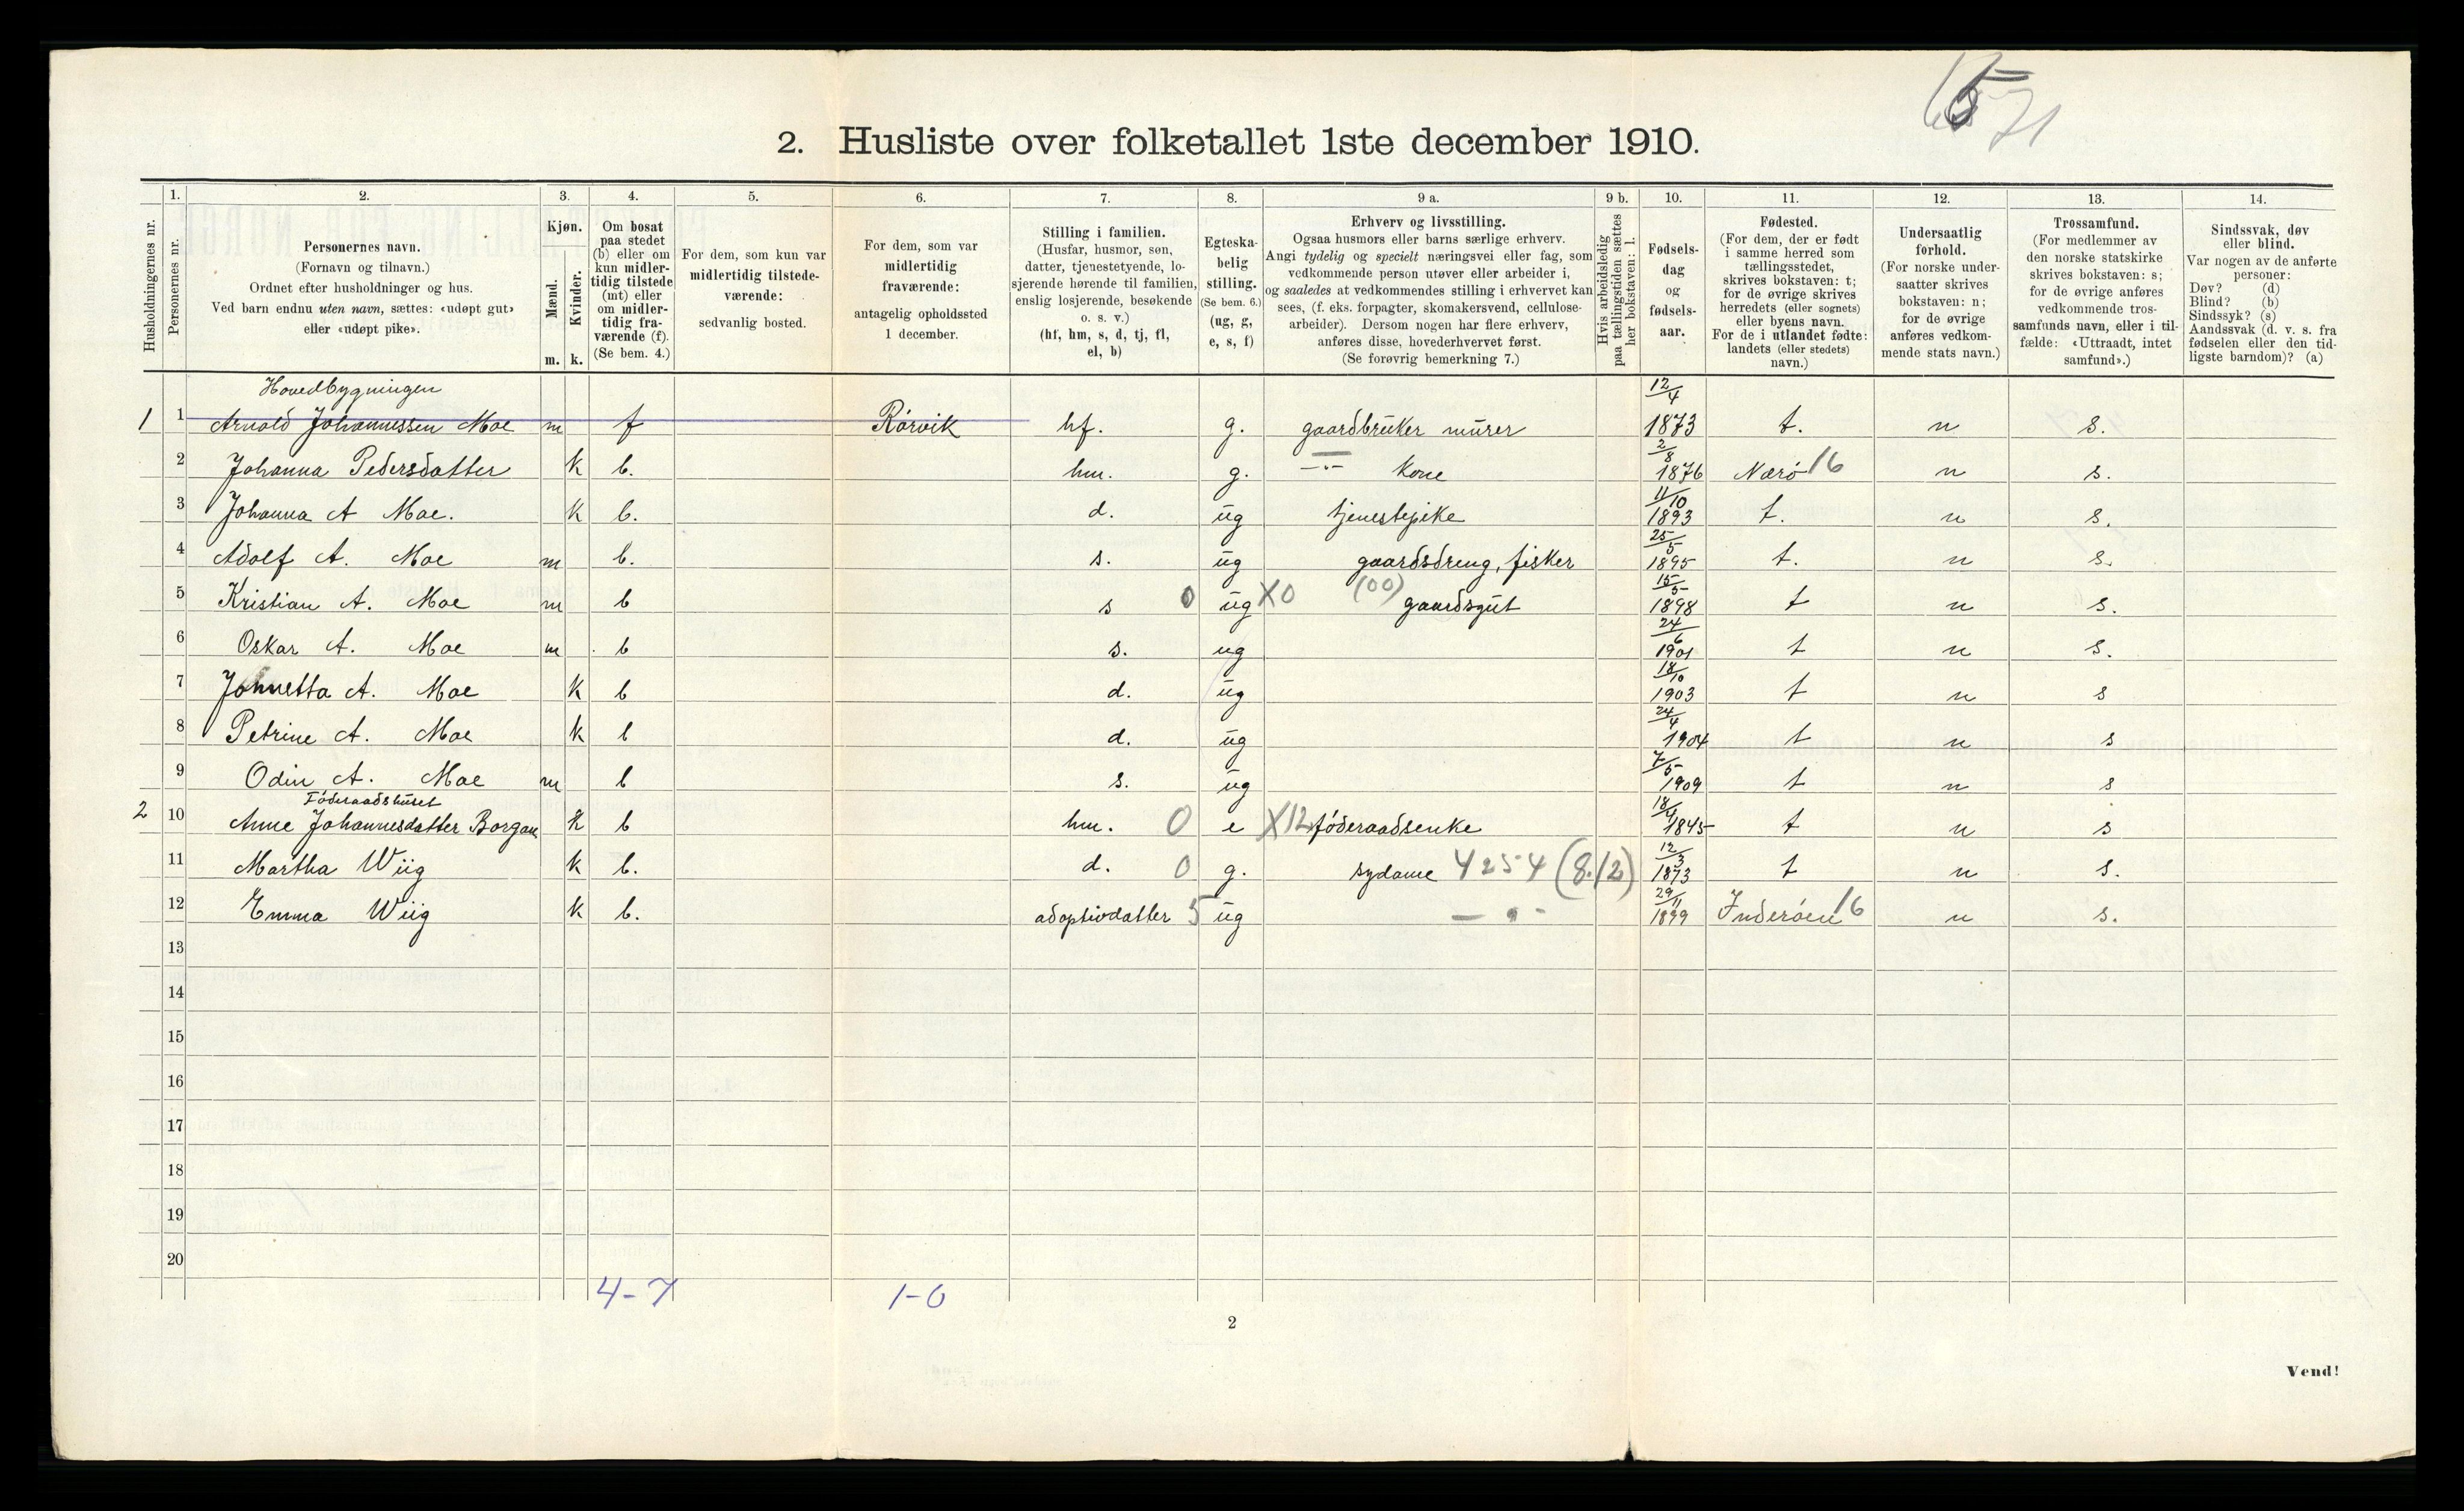 65 71
2. Husliste over folketallet 1ste december 1910.
Husholdningernes nr.
1.
Personernes nr.
2.
Personernes navn.
(Fornavn og tilnavn.)
Ordnet efter husholdninger og hus.
Ved barn endnu uten navn, sættes: «udøpt gut»
eller «udøpt pike».
3.
Kjøn.
Mænd.
m.
Kvinder.
k.
4.
Om bosat
paa stedet
(b) eller om
kun midler-
tidig tilstede
(mt) eller
om midler-
tidig fra-
værende (f).
(Se bem. 4.)
5.
For dem, som kun var
midlertidig tilstede-
værende:
sedvanlig bosted.
6.
For dem, som var
midlertidig
fraværende:
antagelig opholdssted
1 december.
7.
Stilling i familien.
(Husfar, husmor, søn,
datter, tjenestetyende, lo-
sjerende hørende til familien,
enslig losjerende, besøkende
o. s. v.)
(hf, hm, s, d, tj, fl,
el, b)
8.
Egteska-
belig
stilling.
(Se bem. 6.)
(ug, g,
e, s, f)
9 a.
Erhverv og livsstilling.
Ogsaa husmors eller barns særlige erhverv.
Angi tydelig og specielt næringsvei eller fag, som
vedkommende person utøver eller arbeider i,
og saaledes at vedkommendes stilling i erhvervet kan
sees, (f. eks. forpagter, skomakersvend, cellulose-
arbeider). Dersom nogen har flere erhverv,
anføres disse, hovederhvervet først.
(Se forøvrig bemerkning 7.)
9 b.
Hvis arbeidsledig
paa tællingstiden sættes
her bokstaven: l.
10.
Fødsels-
dag
og
fødsels-
aar.
11.
Fødested.
(For dem, der er født
i samme herred som
tællingsstedet,
skrives bokstaven: t;
for de øvrige skrives
herredets (eller sognets)
eller byens navn.
For de i utlandet fødte:
landets (eller stedets)
navn.)
12.
Undersaatlig
forhold.
(For norske under-
saatter skrives
bokstaven: n;
for de øvrige
anføres vedkom-
mende stats navn.)
13.
Trossamfund.
(For medlemmer av
den norske statskirke
skrives bokstaven: s;
for de øvrige anføres
vedkommende tros-
samfunds navn, eller i til-
fælde: «Uttraadt, intet
samfund».)
14.
Sindssvak, døv
eller blind.
Var nogen av de anførte
personer:
Døv? (d)
Blind? (b)
Sindssyk? (s)
Aandssvak (d. v. s. fra
fødselen eller den tid-
ligste barndom)? (a)
Hovedbygningen
1 1 Arnold Johannessen Moe m f Rörvik hf. g. gaardbruker murer 12/4 1873 t. n s.
2 Johanna Pedersdatter k b. hm. g. —"— kone 2/8 1876 Nærö 16 n s.
3 Johanna A Moe. k b. d. ug tjenestepike 11/10 1893 t. n s.
4 Adolf A. Moe m b. s. ug gaardsdreng, fisker 25/5 1895 t. n s.
5 Kristian A. Moe m b s 0 ug X0 (00) gaardsgut 15/5 1898 t n s.
6 Oskar A. Moe m b s. ug 24/6 1901 t n s.
7 Johnetta A. Moe k b d. ug 18/10 1903 t n s
8 Petrine A. Moe k b d. ug 24/4 1904 t n s
9 Odin A. Moe m b s. ug 7/5 1909 t n s
Föderaadshuset
2 10 Anne Johannesdatter Borgan k b hm. 0 e X12 föderaadsenke 18/4 1845 t n s
11 Martha Wiig k b. d. 0 g. sydame 4254 (8.12) 12/3 1873 t n s.
12 Emma Wiig k b. adoptivdatter 5 ug — " - 29/11 1899 Inderöen 16 n s.
13
14
15
16
17
18
19
20
4-7 1-0
2
Vend!